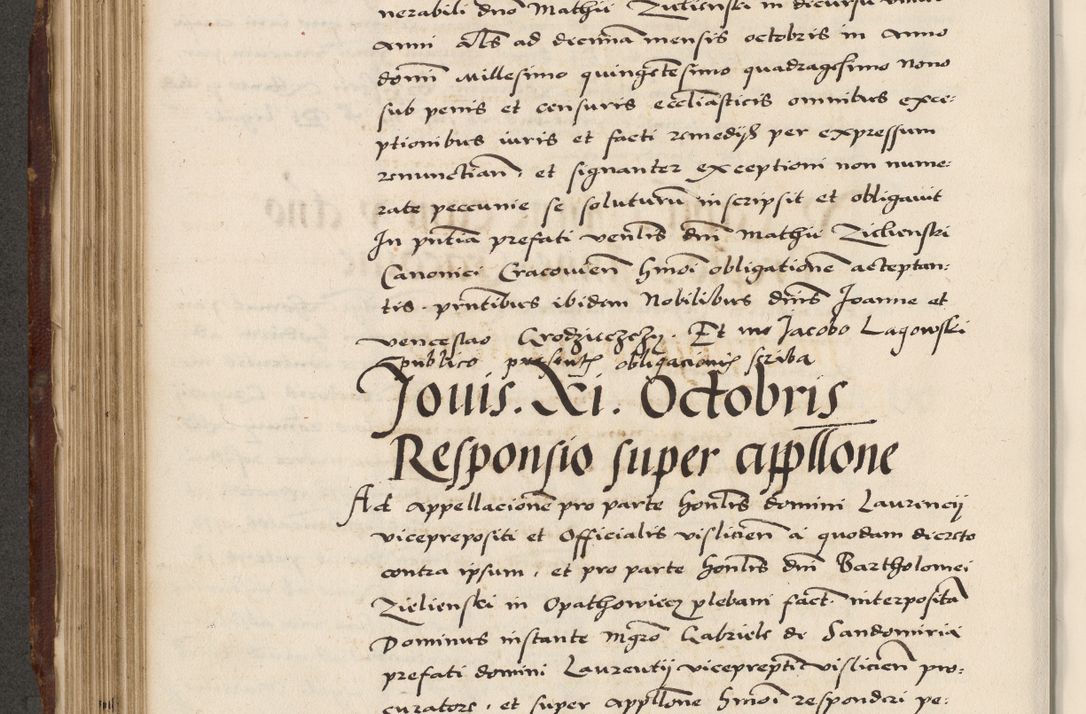 nerabili dno Mathie Zielienski in decursu unius
anni als ad decima mensis octobris in anno
domi Millesimo quingetesimo quadragesimo nono
sub penis et censuris eccliasticis omnibus exce:
ptionibus iuris et facti remedijs per expressum
renunctian, et signanter exceptioni non nume:
rate peccunie se soluturum inscripsit et obligauit
In pntia prefati venlis dni Mathie Zielienski
Canonici Cracouien hmoi obligatione acceptan:
tis. pntibus ibidem Nobilibus dnis Joanne et
venceslao Grodzieczchy. Et me Jacobo Lagowski
publico presentis obligacionis scriba
Jouis. Xi. Octobris
Responsio super appllone
Ad appellacione pro parte honlis domini Laurincij
viceprepositi et Officialis vislicien a quodam dicreto
contra ipsum, et pro parte honlis dni Bartholomei
Zielienski in Opathowiecz plebani fact. interposita
Dominus instante mgro Gabriele de Sandomiria
prefati domini Laurentij viceprepti vislicien pro:
curatore, et super appllone hmoi responderi pe: